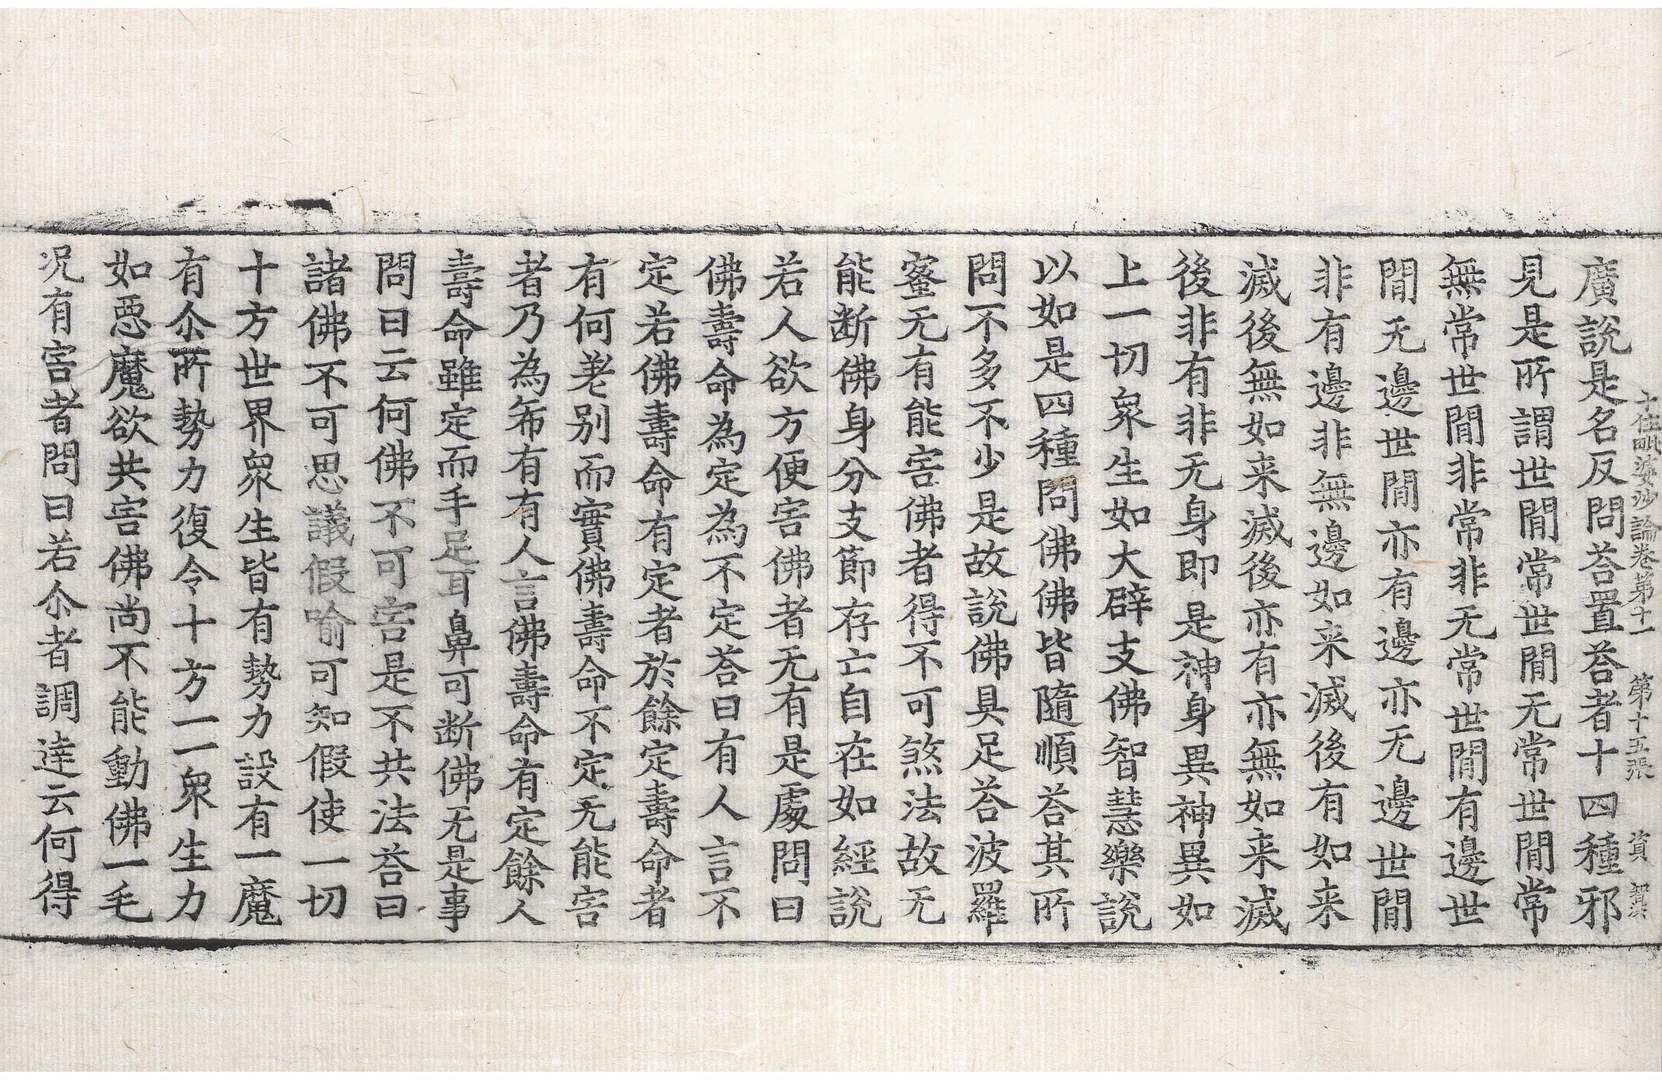 十住毗婆沙論卷第十一　第十五張　資
廣說是名反問荅置荅者十四種邪
見是所謂世閒常世閒无常世閒常
無常世閒非常非无常世閒有邊世
閒无邊世閒亦有邊亦无邊世閒
非有邊非無邊如来滅後有如来
滅後無如来滅後亦有亦無如来滅
後非有非无身即是神身異神異如
上一切衆生如大辟支佛智慧樂說
以如是四種問佛佛皆隨順荅其所
問不多不少是故說佛具足荅波羅
蜜无有能害佛者得不可煞法故无
能断佛身分支節存亡自在如經說
若人欲方便害佛者无有是處問曰
佛壽命為定為不定荅曰有人言不
定若佛壽命有定者於餘定壽命者
有何差别而實佛壽命不定无能害
者乃為希有有人言佛壽命有定餘人
壽命雖定而手足耳鼻可断佛无是事
問曰云何佛不可害是不共法荅曰
諸佛不可思議假喻可知假使一切
十方世界衆生皆有勢力設有一魔
有尒所勢力復令十方一一衆生力
如惡魔欲共害佛尚不能動佛一毛
况有害者問曰若尒者調達云何得